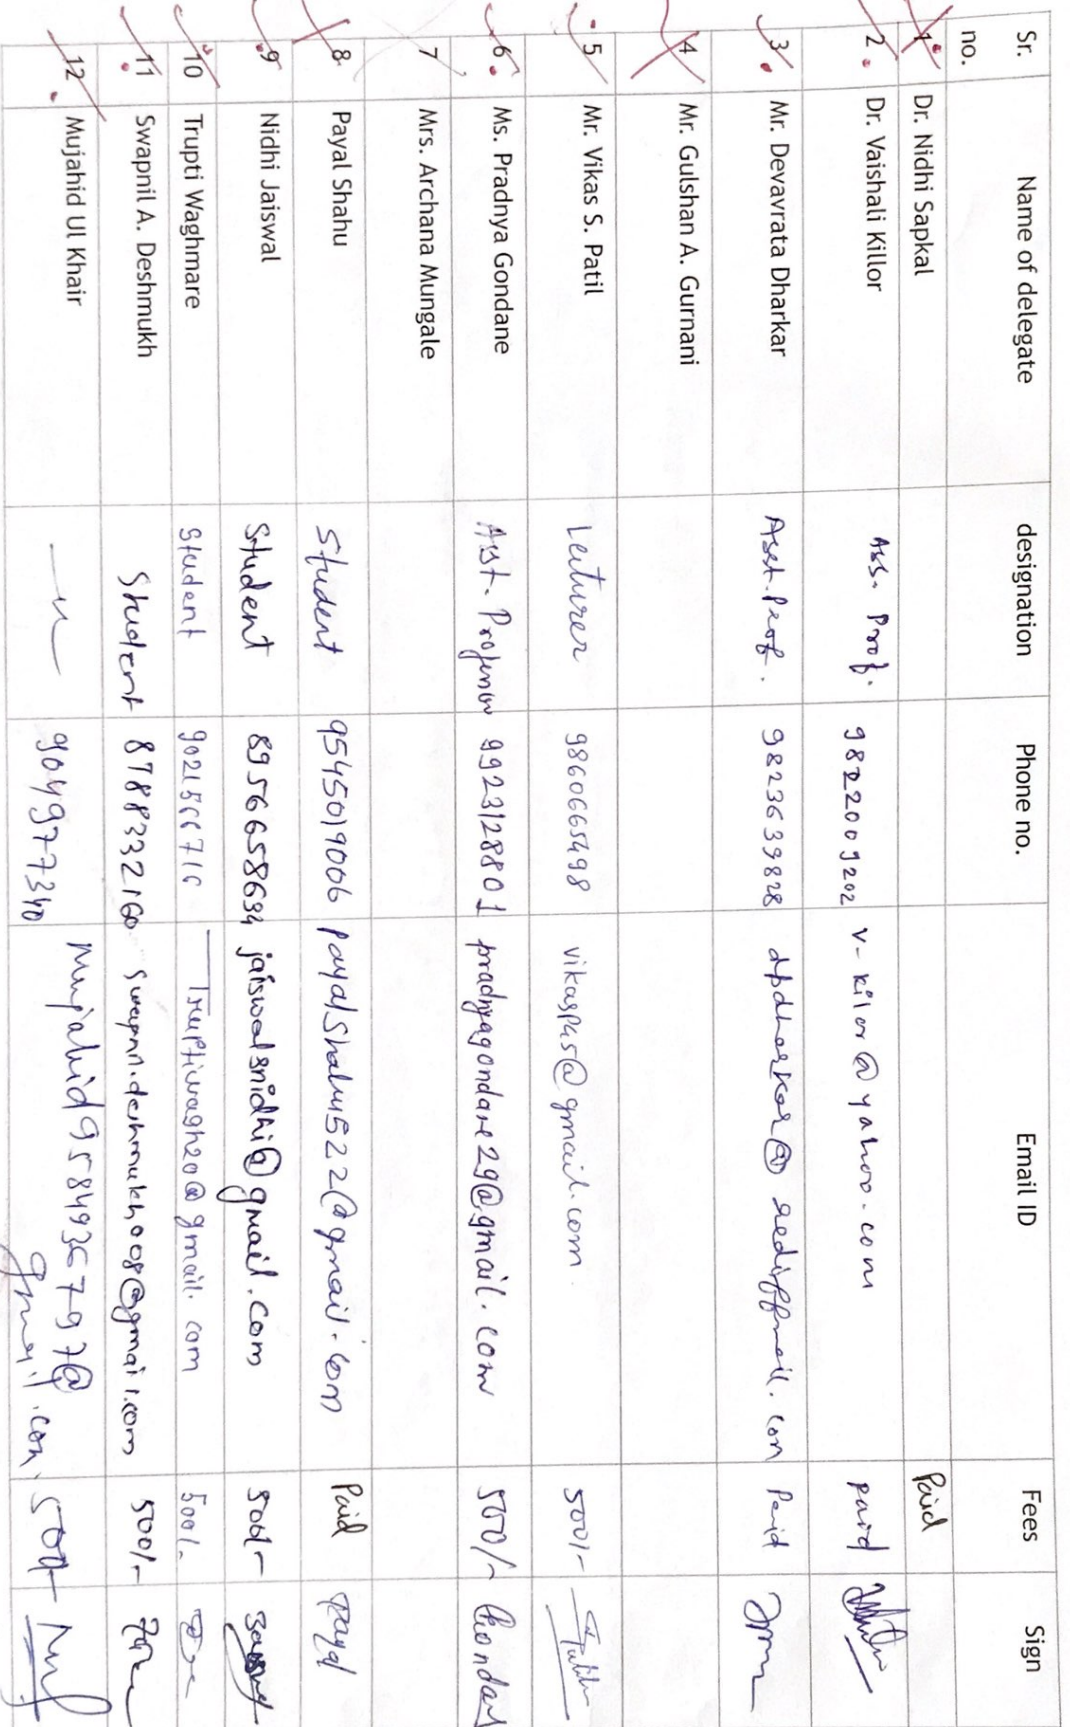 Sr. no. Name of delegate designation Phone no. Email ID Fees Sign
1. Dr. Nidhi Sapkal Paid
2. Dr. Vaishali Killor Ass. Prof. 9822009202 v-kilor@yahoo.com paid
3. Mr. Devavrata Dharkar Asst. Prof. 9823639828 dbdharkar@rediffmail.com Paid
4 Mr. Gulshan A. Gurnani
5 Mr. Vikas S. Patil Lecturer 9860665498 vikaspas@gmail.com 500/-
6 Ms. Pradnya Gondane Asst. Professor 9923128801 pradnyagondane29@gmail.com 500/- Ghondane
7 Mrs. Archana Mungale
8 Payal Shahu Student 9545019006 payalshahu522@gmail.com Paid Payal
9 Nidhi Jaiswal Student 8956658694 jaiswalsnidhi@gmail.com 500/-
10 Trupti Waghmare Student Truptiwagh20@gmail.com 500/-
11 Swapnil A. Deshmukh Student 8788332160 swapnn.deshmukh008@gmail.com 500/-
12 Mujahid Ul Khair —〃— 9049977340 Mujahid9584936797@
gmail.com 500/-